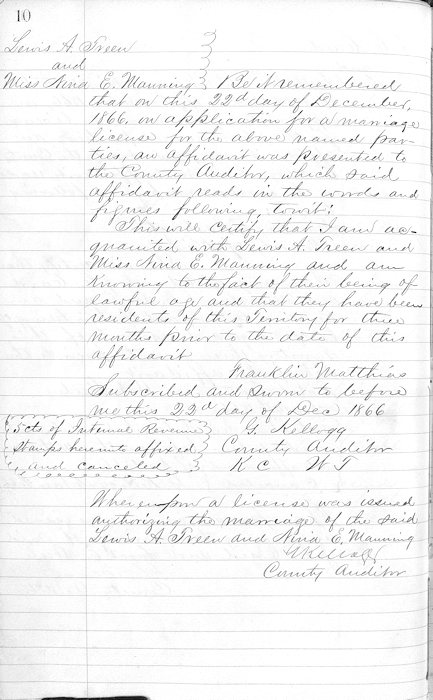 10
Lewis A. Treen
and
Miss Nina E. Manning Be it remembered
that on this 22d day of December,
1866, on application for a marriage
license for the above named par-
ties, an affidavit was presented to
the County Auditor, which said
affidavit reads in the words and
figures following, towit:
This will certify that I am ac-
quainted with Lewis A. Treen and
Miss Nina E. Manning and am
knowing to the fact of their being of
lawful age and that they have been
residents of this Territory for three
months prior to the date of this
affidavit
Franklin Matthias
Subscribed and sworn to before
me this 22d day of Dec 1866
5cts of Internal Revenue G. Kellogg
Stamps hereunto affixed County Auditor
and canceled K C W T
Whereupon a license was issued
authorizing the marriage of the said
Lewis A. Treen and Nina E. Manning
GKellogg
County Auditor